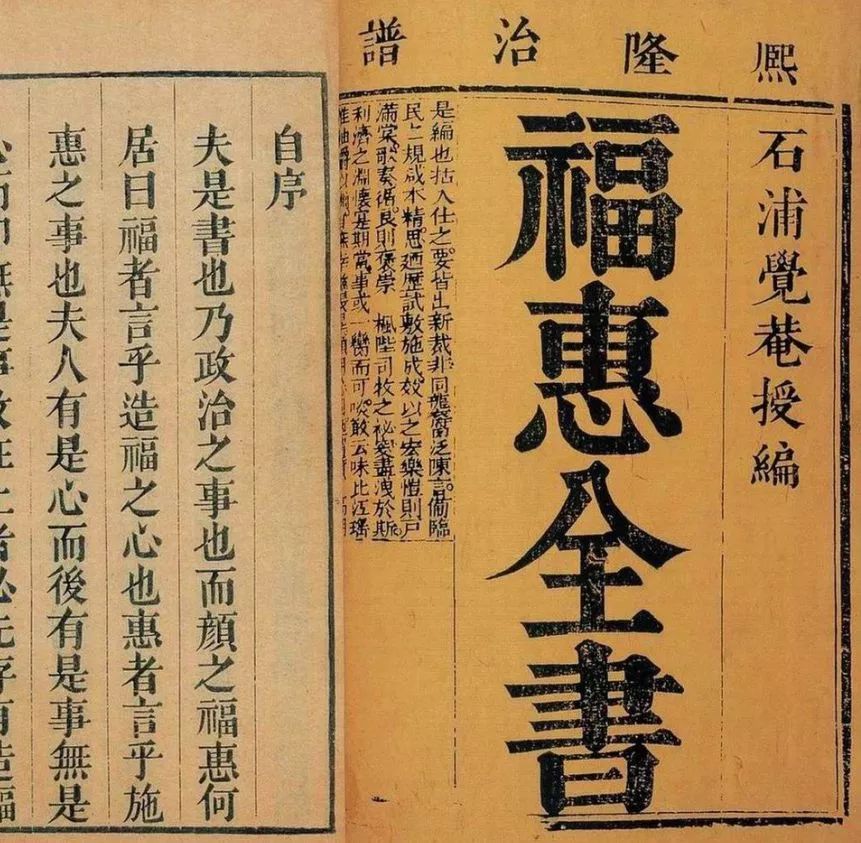 熙隆治譜
石浦覺菴授編
福惠全書
是編也括入仕之要皆出新裁非同泛陳言倘臨
民之規咸本精思廼歷試敷施成效以之宏樂愷則戶
滿棠歌奏循良則褒崇 楓陛司牧之祕笈盡洩於斯
利濟之淵懷寔期當事或一臠而可啖敢云味比江瑤
自序
夫是書也乃政治之事也而顏之福惠何
居曰福者言乎造福之心也惠者言乎施
惠之事也夫人有是心而後有是事無是
心而卽無是事故在上者必先存有造福